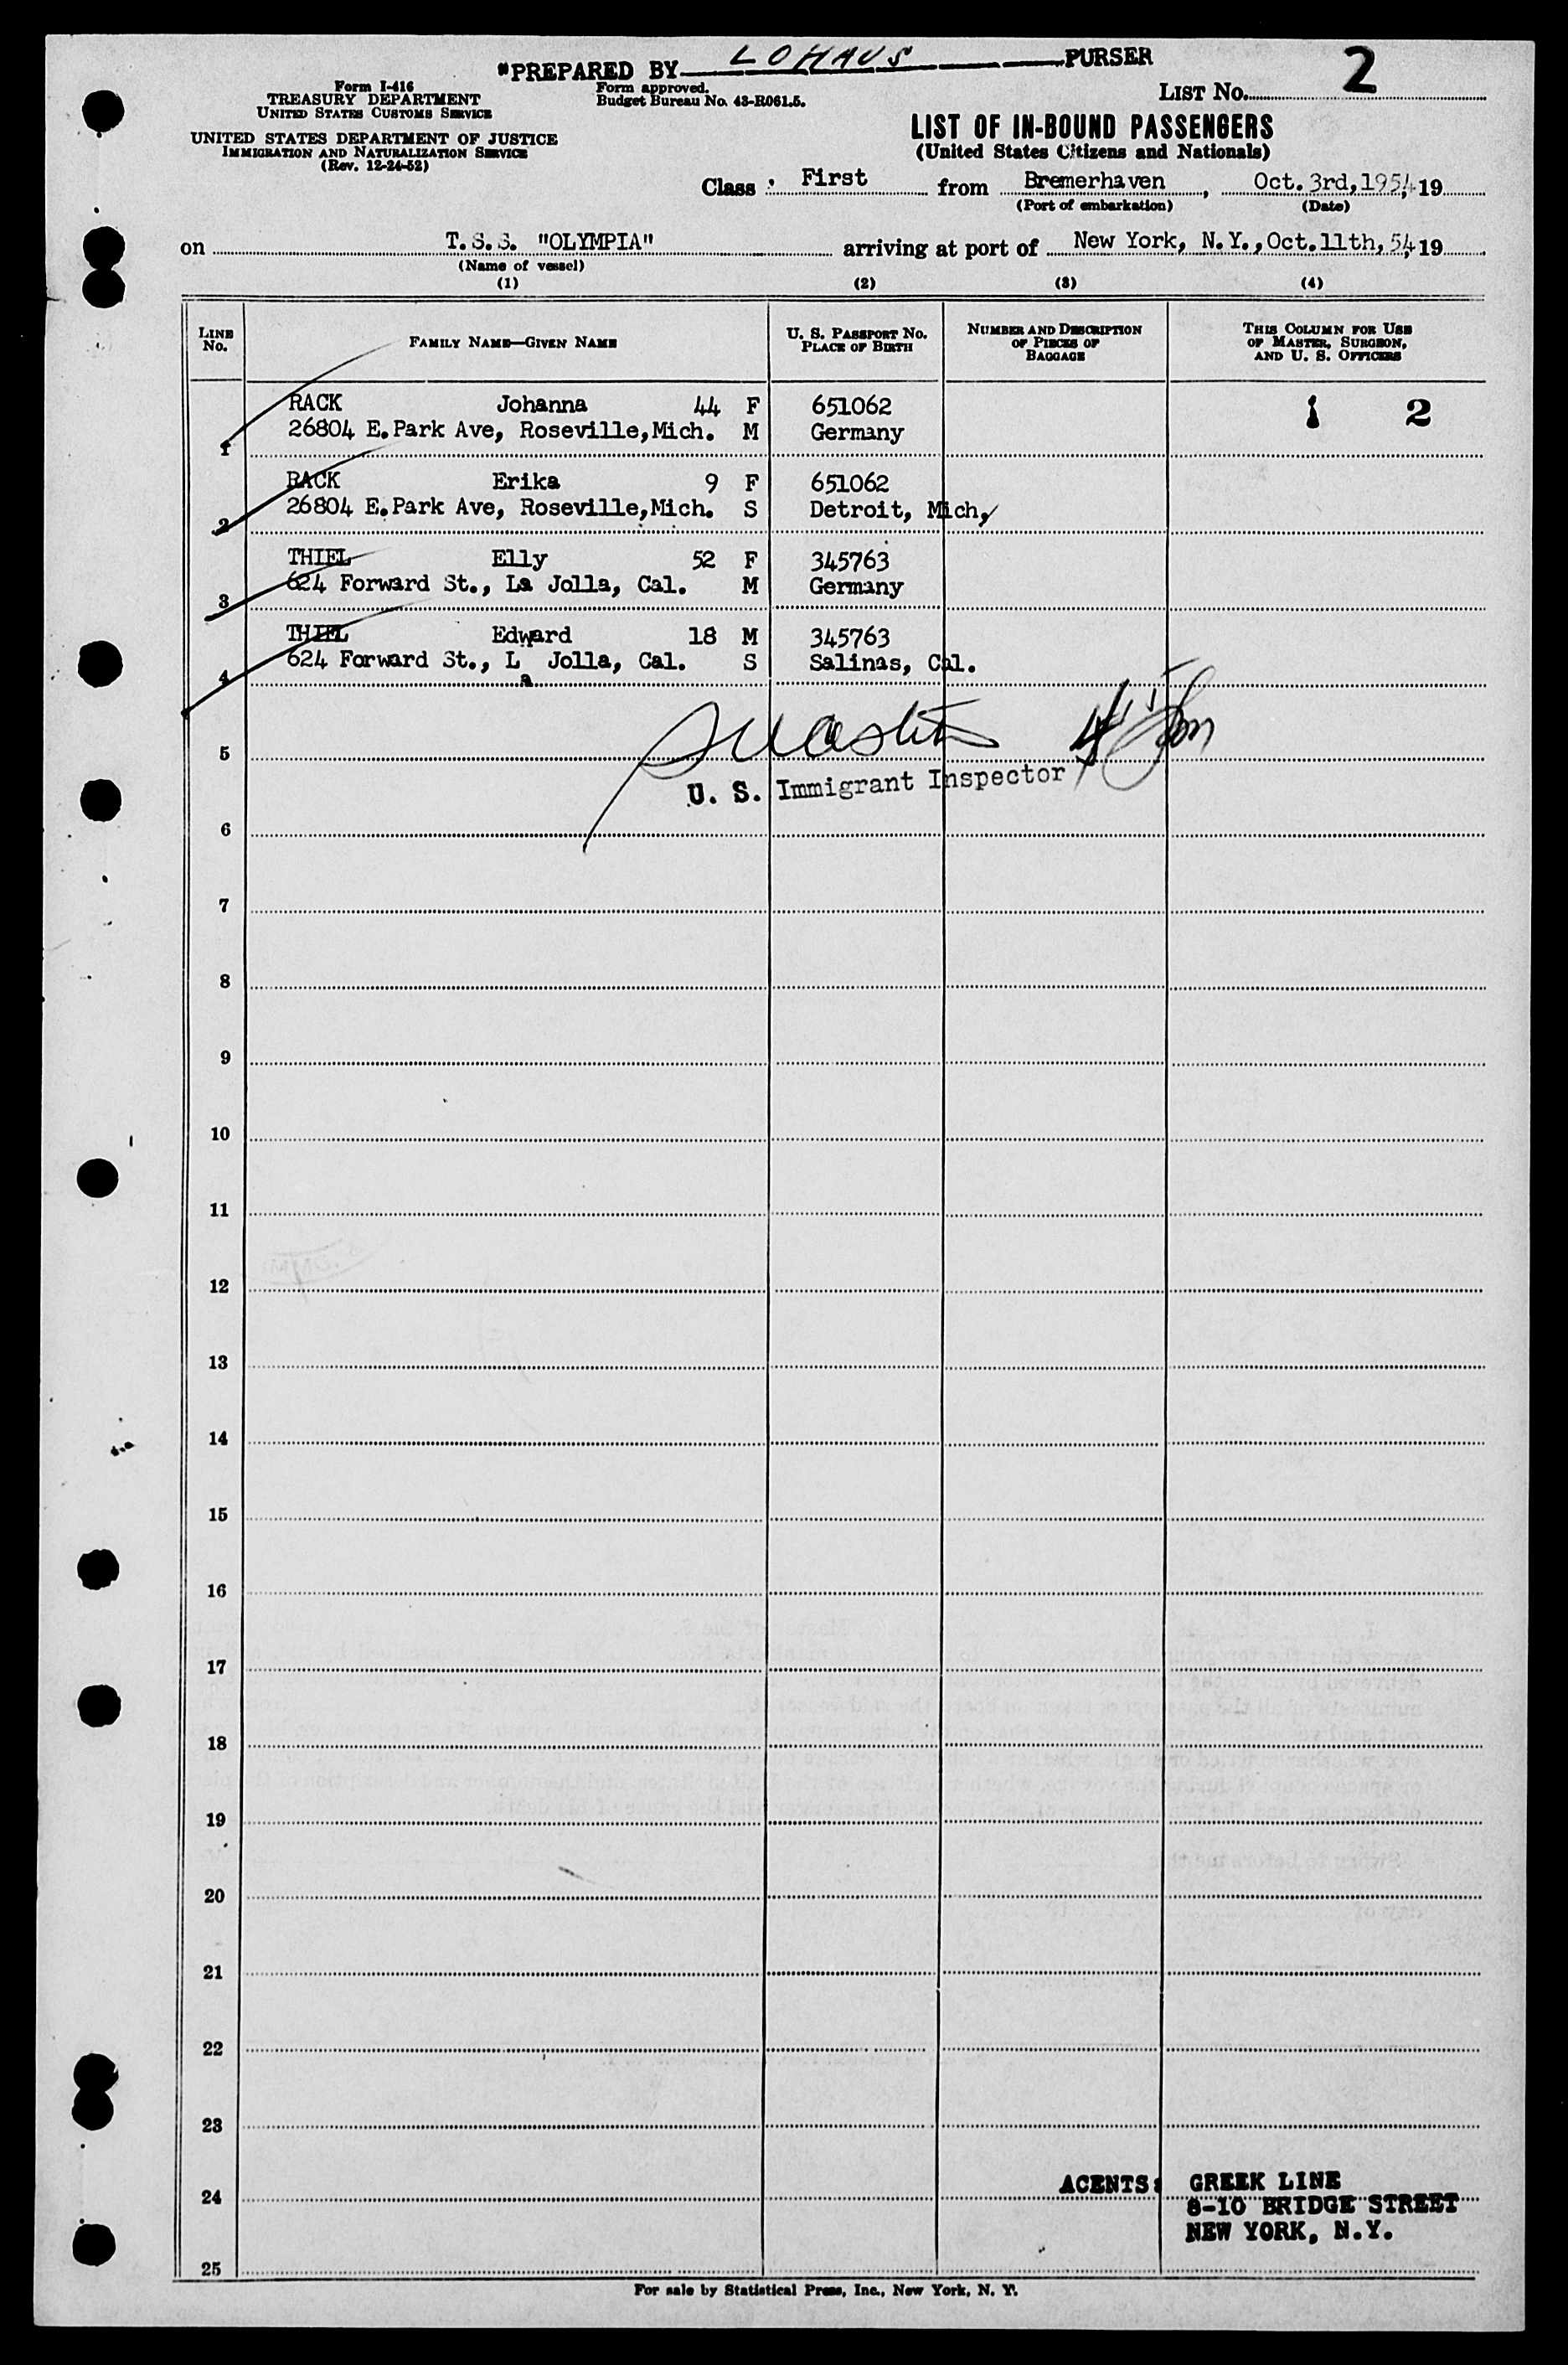 "PREPARED BY LOHAUS PURSER
Form I-416
TREASURY DEPARTMENT
UNITED STATES CUSTOMS SERVICE
Form approved.
Budget Bureau No. 43-R061.5.
LIST NO. 2
UNITED STATES DEPARTMENT OF JUSTICE
IMMIGRATION AND NATURALIZATION SERVICE
(Rev. 12-24-52)
LIST OF IN-BOUND PASSENGERS
(United States Citizens and Nationals)
Class : First from Bremerhaven, Oct. 3rd, 1954, 19
(Port of embarkation) (Date)
on T.S.S. "OLYMPIA" arriving at port of New York, N.Y., Oct.11th, 54, 19
(Name of vessel)
(1) (2) (3) (4)
LINE NO. FAMILY NAME—GIVEN NAME U. S. PASSPORT NO. PLACE OF BIRTH NUMBER AND DESCRIPTION OF PIECES OF BAGGAGE THIS COLUMN FOR USE OF MASTER, SURGEON, AND U. S. OFFICERS
RACK Johanna 44 F 651062 1 2
1 26804 E.Park Ave, Roseville,Mich. M Germany
RACK Erika 9 F 651062
2 26804 E.Park Ave, Roseville,Mich. S Detroit, Mich,
THIEL Elly 52 F 345763
3 624 Forward St., La Jolla, Cal. M Germany
THIEL Edward 18 M 345763
4 624 Forward St., La Jolla, Cal. S Salinas, Cal.
5
U. S. Immigrant Inspector
6
7
8
9
10
11
12
13
14
15
16
17
18
19
20
21
22
23
24 AGENTS: GREEK LINE
8-10 BRIDGE STREET
NEW YORK, N.Y.
25
For sale by Statistical Press, Inc., New York, N. Y.